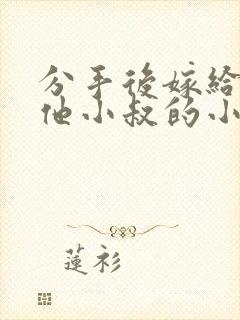 分手後嫁給
他小叔的小
蓮衫